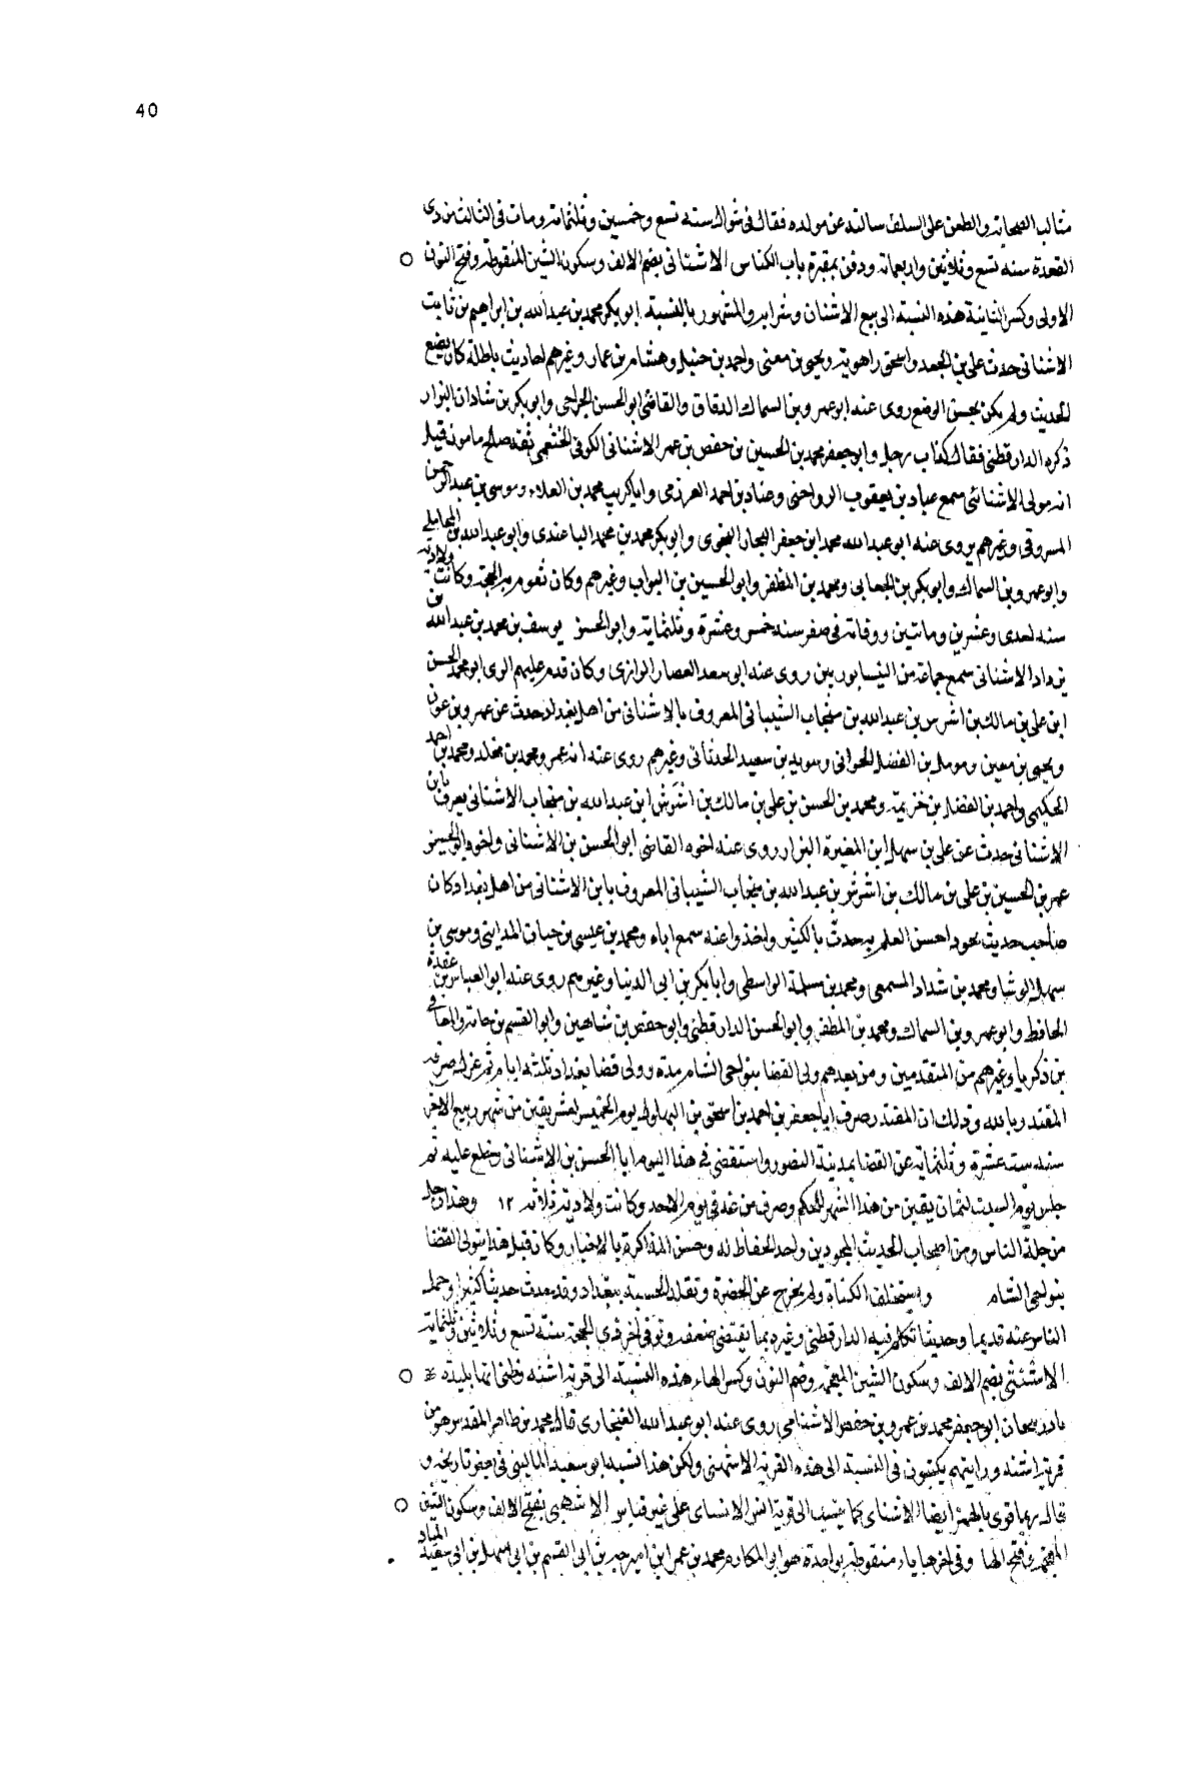 40
مثالب الصحابة والطعن على السلف سالته عن مولده فقال فى شوال سنه تسع وخمسين وثلثمائة ومات فى الثالث من ذى
القعدة سنه تسع وثلاثين واربعمائة ودفن بمقبرة باب الكناس الاشنانى بضم الالف وسكون الشين المنقوطة وفتح النون
الاولى وكسر الثانية هذه النسبة الى بيع الاشنان وشرايه والمشهور بالنسبة ابو بكر محمد بن عبد الله بن ابراهيم بن ثابت
الاشنانى حدث على بن الجعد واسحق راهوية ويحيى بن معين واحمد بن حنبل وهشام بن عمار وغيرهم احاديث باطلة كان يضع
الحديث ولم يكن يحسن الوضع روى عنه ابو عمرو بن السماك الدقاق والقاضى ابو الحسن الجراحى وابو بكر بن شاذان البزار
ذكره الدارقطنى فقال كذاب رجل وابو جعفر محمد بن الحسين بن حفص بن عمر الاشنانى الكوفى الخثعمى ثقة صالح مامون قيل
انه مولى الاشنانى سمع عباد بن يعقوب الرواجنى وعباد بن احمد العرزمى وابا كريب محمد بن العلاء وموسى بن عبد الرحمن
المسروقى وغيرهم يروى عنه ابو عبد الله محمد ابن جعفر النجار النحوى وابو بكر محمد بن محمد الباغندى وابو عبد الله بن المحاملى
وابو عمرو بن السماك وابو بكر بن الجعابى ومحمد بن المظفر وابو الحسين بن البواب وغيرهم وكان تقوم به الحجة وكانت ولادته
سنه احدى وعشرين وماتين ووفاته فى صفر سنه خمس وعشرة وثلثماية وابو الحسن يوسف بن محمد بن عبد الله بن
يزداد الاشنانى سمع جماعة من النيسابوريين روى عنه ابو سعد العصار الرازى وكان قدم عليهم الرى ابو محمد الحسن
ابن على بن مالك بن اشرس بن عبد الله بن منجاب الشيبانى المعروف بالاشنانى من اهل بغداد حدث عن عمرو بن عون
ويحيى بن معين ومومل بن الفضل الحرانى وسويد بن سعيد الحدثانى وغيرهم روى عنه ابنه عمر ومحمد بن مخلد ومحمد بن احمد
الحكيمى واحمد بن الفضل بن خزيمة ومحمد بن الحسن بن على بن مالك بن اشرش ابن عبد الله بن منجاب الاشنانى يعرف بابن
الاشنانى حدث عن على بن سهل ابن المغيرة البزار روى عنه اخوه القاضى ابو الحسن بن الاشنانى واخوه ابو الحسين
عمر بن الحسين بن على بن مالك بن اشرش بن عبد الله بن منجاب الشيبانى المعروف بابن الاشنانى من اهل بغداد كان
صاحب حديث مجودا حسن العلم به حدث بالكثير واخذوا عنه سمع اباه ومحمد بن عيسى بن حيان المداينى وموسى بن
سهل الوشا ومحمد بن شداد المسمعى ومحمد بن مسلمة الواسطى وابا بكر بن ابى الدنيا وغيرهم روى عنه ابو العباس بن عقدة
الحافظ وابو عمرو بن السماك ومحمد بن المظفر وابو الحسن الدارقطنى وابو حفص بن شاهين وابو القسم بن حبابة والمعافى
بن زكريا وغيرهم من المتقدمين ومن بعدهم ولى القضا بنواحى الشام مدة وولى قضا بغداد ثلثة ايام ثم عزله صرفه
المقتدر بالله وذلك ان المقتدر صرف ابا جعفر بن احمد بن اسحق بن البهلول يوم الخميس لعشر بقين من شهر ربيع الاخر
سنه ست عشرة وثلثماية عن القضا بمدينة المنصور واستقضى فى هذا اليوم ابا الحسن بن الاشنانى وخلع عليه ثم
جلس يوم السبت لثمان بقين من هذا الشهر للحكم وصرف من غد فى يوم الاحد وكانت ولايته ثلاثه ١٢ وهذا رجل
من جلة الناس ومن اصحاب الحديث المجودين واحد الحفاظ له وحسن المذاكرة بالاخبار وكان قبل هذا يتولى القضا
بنواحى الشام ويستخلف الكفاة ولم يخرج عن الحضرة وتقلد الحسبة ببغداد وقد حدث حديثا كثيرا وحمل
الناس عنه قديما وحديثا تكلم فيه الدارقطنى وغيره بما يقتضى ضعفه وتوفى اخر ذى الحجة سنة تسع وثلاثين وثلثماية
الاشنهى بضم الالف وسكون الشين المعجمة وضم النون وكسر الهاء هذه النسبة الى قرية اشنه وظنى انها بليدة
باذربيجان ابو جعفر محمد بن عمرو بن حفص الاشنانى روى عنه ابو عبد الله الغنجارى قال محمد بن طاهر المقدسى هو من
قرية اشنه ورايتهم يكتبون فى النسبة الى هذه القرية الاشنهى ولكن هذا نسبه ابو سعيد المالينى فى بعض تاريخه و
قال ربما قرى بالهمز ايضا الاشناى كما ينسب الى قوية النسا الانساى على غير قياس الاشهبى بفتح الالف وسكون الشين
المعجمة وفتح الها وفى اخرها باء منقوطة بواحدة هو ابى المكارم محمد بن عمر ابن اميرجه بن ابى القسم بن ابى سهل بن ابى سعيد العياد